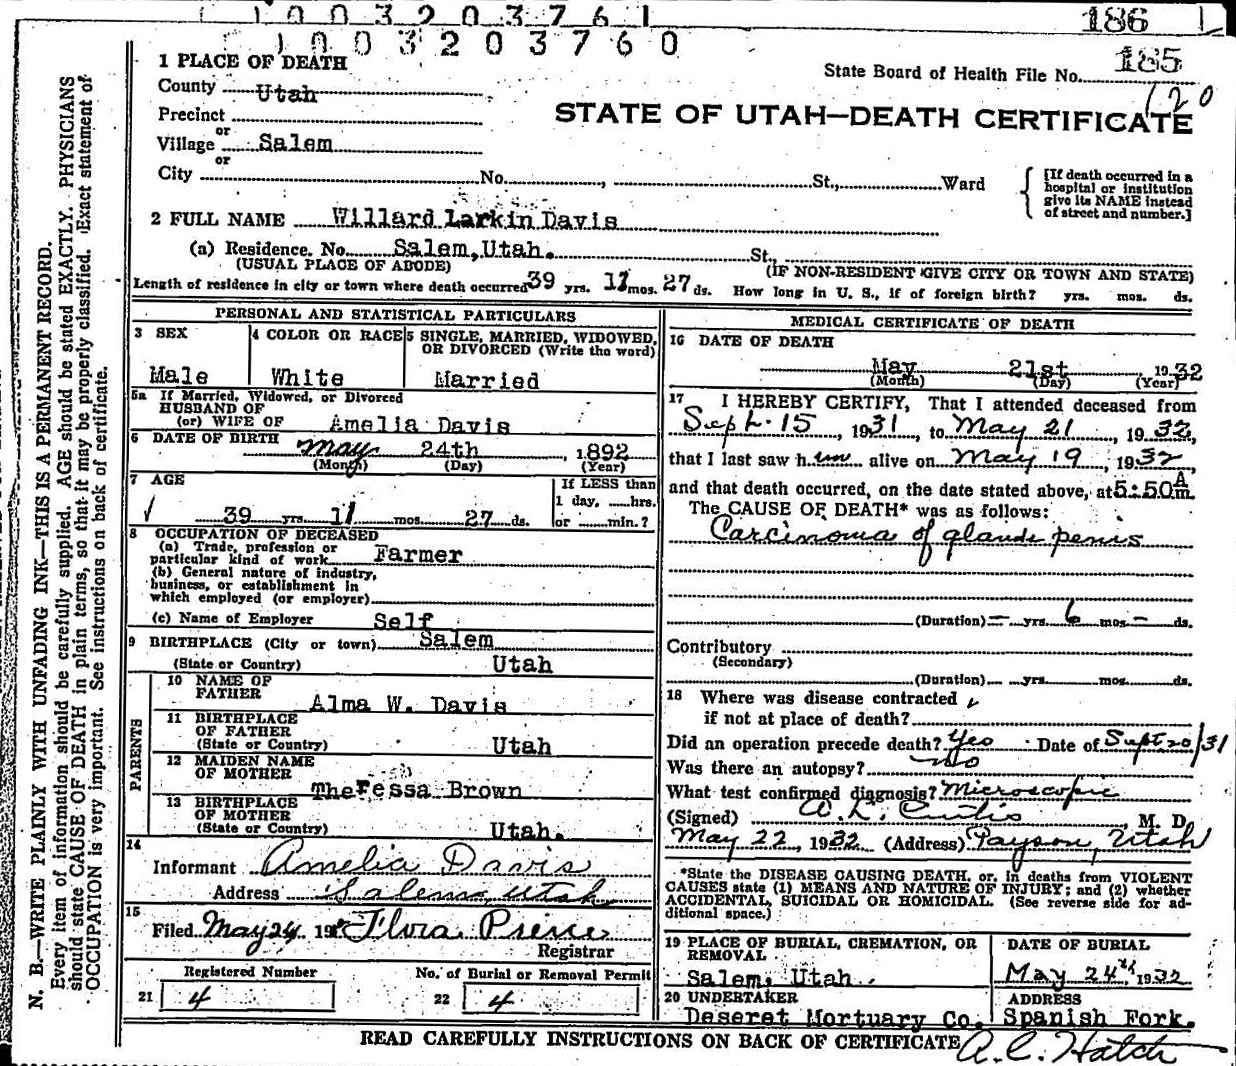 1003203761
186
1003203760
1 PLACE OF DEATH
State Board of Health File No. 185
120
County Utah
STATE OF UTAH—DEATH CERTIFICATE
Precinct
or
Village Salem
or
City No. , St., Ward
{ [If death occurred in a
hospital or institution
give its NAME instead
of street and number.]
2 FULL NAME Willard Larkin Davis
(a) Residence. No. Salem, Utah. St.,
(USUAL PLACE OF ABODE) (IF NON-RESIDENT GIVE CITY OR TOWN AND STATE)
Length of residence in city or town where death occurred 39 yrs. 11 mos. 27 ds. How long in U. S., if of foreign birth? yrs. mos. ds.
PERSONAL AND STATISTICAL PARTICULARS
3 SEX
Male
4 COLOR OR RACE
White
5 SINGLE, MARRIED, WIDOWED,
OR DIVORCED (Write the word)
Married
5a If Married, Widowed, or Divorced
HUSBAND OF
(or) WIFE OF Amelia Davis
6 DATE OF BIRTH May 24th , 1892
(Month) (Day) (Year)
7 AGE
39 yrs. 11 mos. 27 ds.
If LESS than
1 day, hrs.
or min.?
8 OCCUPATION OF DECEASED
(a) Trade, profession or
particular kind of work Farmer
(b) General nature of industry,
business, or establishment in
which employed (or employer)
(c) Name of Employer Self
9 BIRTHPLACE (City or town) Salem
(State or Country) Utah
PARENTS
10 NAME OF
FATHER
Alma W. Davis
11 BIRTHPLACE
OF FATHER
(State or Country) Utah
12 MAIDEN NAME
OF MOTHER
TheFessa Brown
13 BIRTHPLACE
OF MOTHER
(State or Country) Utah.
14
Informant Amelia Davis
Address Salem, Utah
15
Filed May 24 19 Flora Pierse
Registrar
Registered Number
21 4
No. of Burial or Removal Permit
22 4
MEDICAL CERTIFICATE OF DEATH
16 DATE OF DEATH
May 21st , 1932
(Month) (Day) (Year)
17 I HEREBY CERTIFY, That I attended deceased from
Sept. 15 , 1931, to May 21 , 1932,
that I last saw him alive on May 19 , 1932,
and that death occurred, on the date stated above, at 5:50 A m.
The CAUSE OF DEATH* was as follows:
Carcinoma of glande penis
(Duration) — yrs. 6 mos. — ds.
Contributory
(Secondary)
(Duration) yrs. mos. ds.
18 Where was disease contracted
if not at place of death?
Did an operation precede death? Yes Date of Sept 20/31
Was there an autopsy? No
What test confirmed diagnosis? Microscopic
(Signed) A. L. Curtis , M. D.
May 22, 1932 (Address) Payson, Utah
*State the DISEASE CAUSING DEATH, or, in deaths from VIOLENT
CAUSES state (1) MEANS AND NATURE OF INJURY; and (2) whether
ACCIDENTAL, SUICIDAL OR HOMICIDAL. (See reverse side for ad-
ditional space.)
19 PLACE OF BURIAL, CREMATION, OR
REMOVAL
Salem, Utah.
DATE OF BURIAL
May 24th, 1932
20 UNDERTAKER
Deseret Mortuary Co.
ADDRESS
Spanish Fork.
READ CAREFULLY INSTRUCTIONS ON BACK OF CERTIFICATE
A. C. Hatch
N. B.—WRITE PLAINLY WITH UNFADING INK—THIS IS A PERMANENT RECORD.
Every item of information should be carefully supplied. AGE should be stated EXACTLY. PHYSICIANS
should state CAUSE OF DEATH in plain terms, so that it may be properly classified. Exact statement of
OCCUPATION is very important. See instructions on back of certificate.